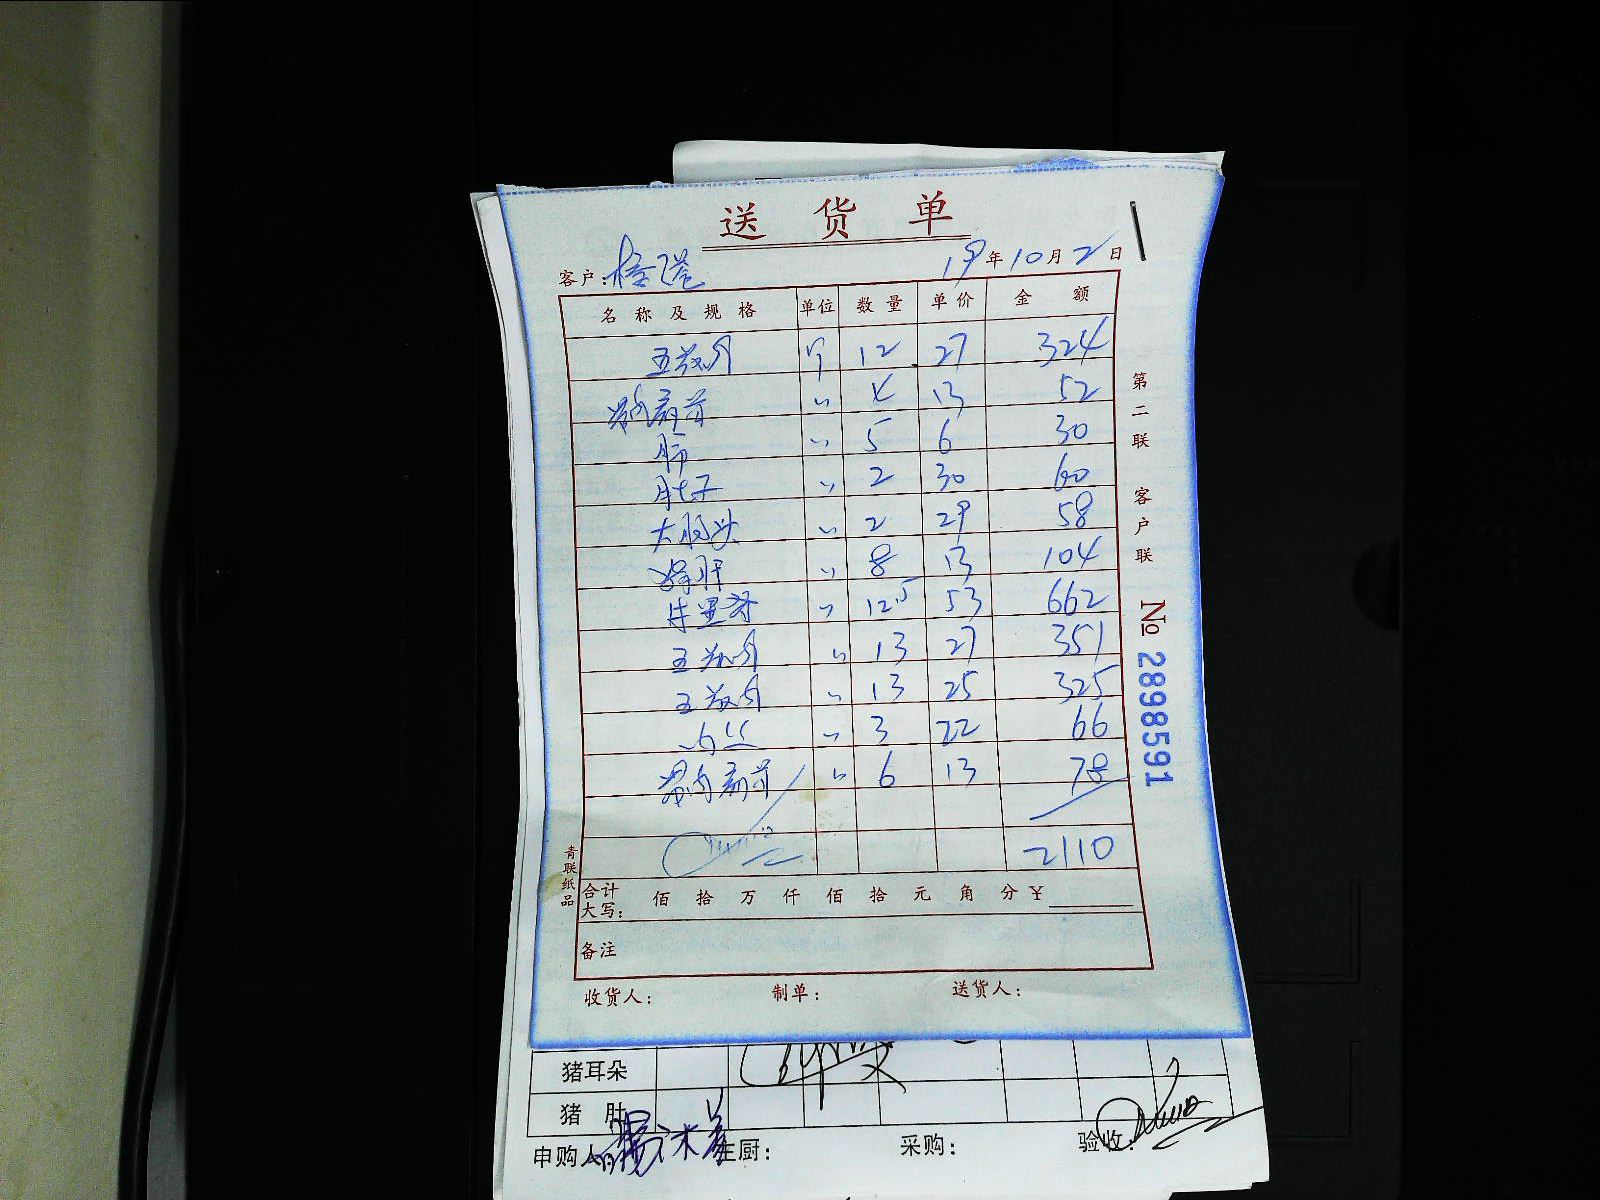 送 货 单
客户: 19年10月2日
名称及规格 单位 数量 单价 金额
五花肉 斤 12 27 324
带肉扇骨 〃 4 13 52
肺 〃 5 6 30
肚子 〃 2 30 60
大肠头 〃 2 29 58
猪肝 〃 8 13 104
牛里脊 〃 12.5 53 662
五花肉 〃 13 27 351
五花肉 〃 13 25 325
肉丝 〃 3 22 66
带肉扇骨 〃 6 13 78
2110
合计大写: 佰 拾 万 仟 佰 拾 元 角 分 ¥
备注
收货人: 制单: 送货人:
第二联 客户联
№ 2898591
青联纸品
猪耳朵
猪 肚
申购人: 主厨: 采购: 验收: